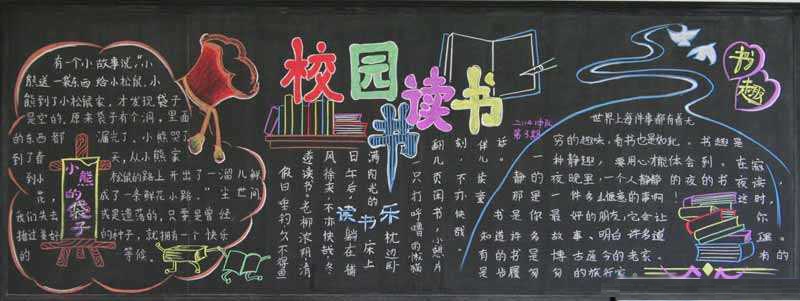 有一个小故事说,“小
熊送一袋东西给小松鼠,小
熊到了小松鼠家,才发现袋子
是空的,原来袋子有个洞,里面
的东西都漏光了,小熊哭了
到了春天,从小熊家
到小松鼠的路上开出了一溜儿鲜
花,成了一条鲜花小路。”尘世间
我们失去或是遗落的,只要是曾经
描过美好的种子,就拥有一个快乐
的等候。
小熊的袋子
校园读书
书
第3期
读书乐
遮读书老柳浓阴清
假日垂钓久不得鱼
日午后躺在铺
满阳光的床上
枕边卧
一只打呼噜的懒猫
翻几页闲书,小憩片
刻,不亦快哉。
伴儿读童
话。
书趣
世界上每件事都有着无
穷的趣味,看书也是如此。书趣是
一种静趣,要用心才能体会到。在寂
静的夜晚里,一个人静静的夜的书夜读
那是一件多么惬意的事啊!这时,
书是你最好的朋友,它会让你
知道许多故事。明白许多道理。
有的是博古通今的老家。有的
是步履匆匆的旅行家。